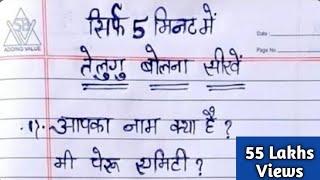 ADDING VALUE
Date
Page No.
सिर्फ 5 मिनट में
तेलुगु बोलना सीखें
1). आपका नाम क्या है ?
मी पेरू एमिटी ?
55 Lakhs
Views